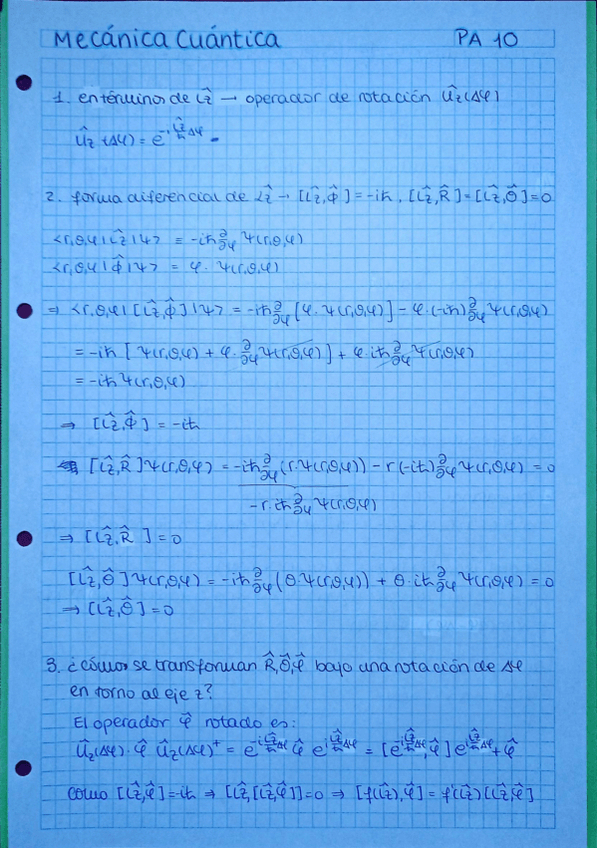 Mecánica Cuántica PA 10
1. en términos de L̂z → operador de rotación Ûz(Δφ)
Ûz(Δφ) = e^(-i L̂z/ħ Δφ)
2. forma diferencial de L̂z → [L̂z,Φ̂] = -iħ, [L̂z,R̂] = [L̂z,Θ̂] = 0
<r,θ,φ|L̂z|ψ> = -iħ ∂/∂φ ψ(r,θ,φ)
<r,θ,φ|Φ̂|ψ> = φ· ψ(r,θ,φ)
⇒ <r,θ,φ|[L̂z,Φ̂]|ψ> = -iħ ∂/∂φ [φ·ψ(r,θ,φ)] - φ·(-iħ) ∂/∂φ ψ(r,θ,φ)
= -iħ [ψ(r,θ,φ) + φ· ∂/∂φ ψ(r,θ,φ)] + φ·iħ ∂/∂φ ψ(r,θ,φ)
= -iħ ψ(r,θ,φ)
⇒ [L̂z,Φ̂] = -iħ
[L̂z,R̂]ψ(r,θ,φ) = -iħ ∂/∂φ (r·ψ(r,θ,φ)) - r(-iħ) ∂/∂φ ψ(r,θ,φ) = 0
-r·iħ ∂/∂φ ψ(r,θ,φ)
⇒ [L̂z,R̂] = 0
[L̂z,Θ̂]ψ(r,θ,φ) = -iħ ∂/∂φ (θ·ψ(r,θ,φ)) + θ·iħ ∂/∂φ ψ(r,θ,φ) = 0
⇒ [L̂z,Θ̂] = 0
3. ¿cómo se transforman R̂,Θ̂,φ̂ bajo una rotación de Δφ
en torno al eje z?
El operador φ̂ rotado es:
Ûz(Δφ)· φ̂ Ûz(Δφ)⁺ = e^(-i L̂z/ħ Δφ) φ̂ e^(i L̂z/ħ Δφ) = [e^(-i L̂z/ħ Δφ), φ̂] e^(i L̂z/ħ Δφ) + φ̂
Como [L̂z,φ̂] = iħ ⇒ [L̂z,[L̂z,φ̂]] = 0 ⇒ [f(L̂z),φ̂] = f'(L̂z)[L̂z,φ̂]